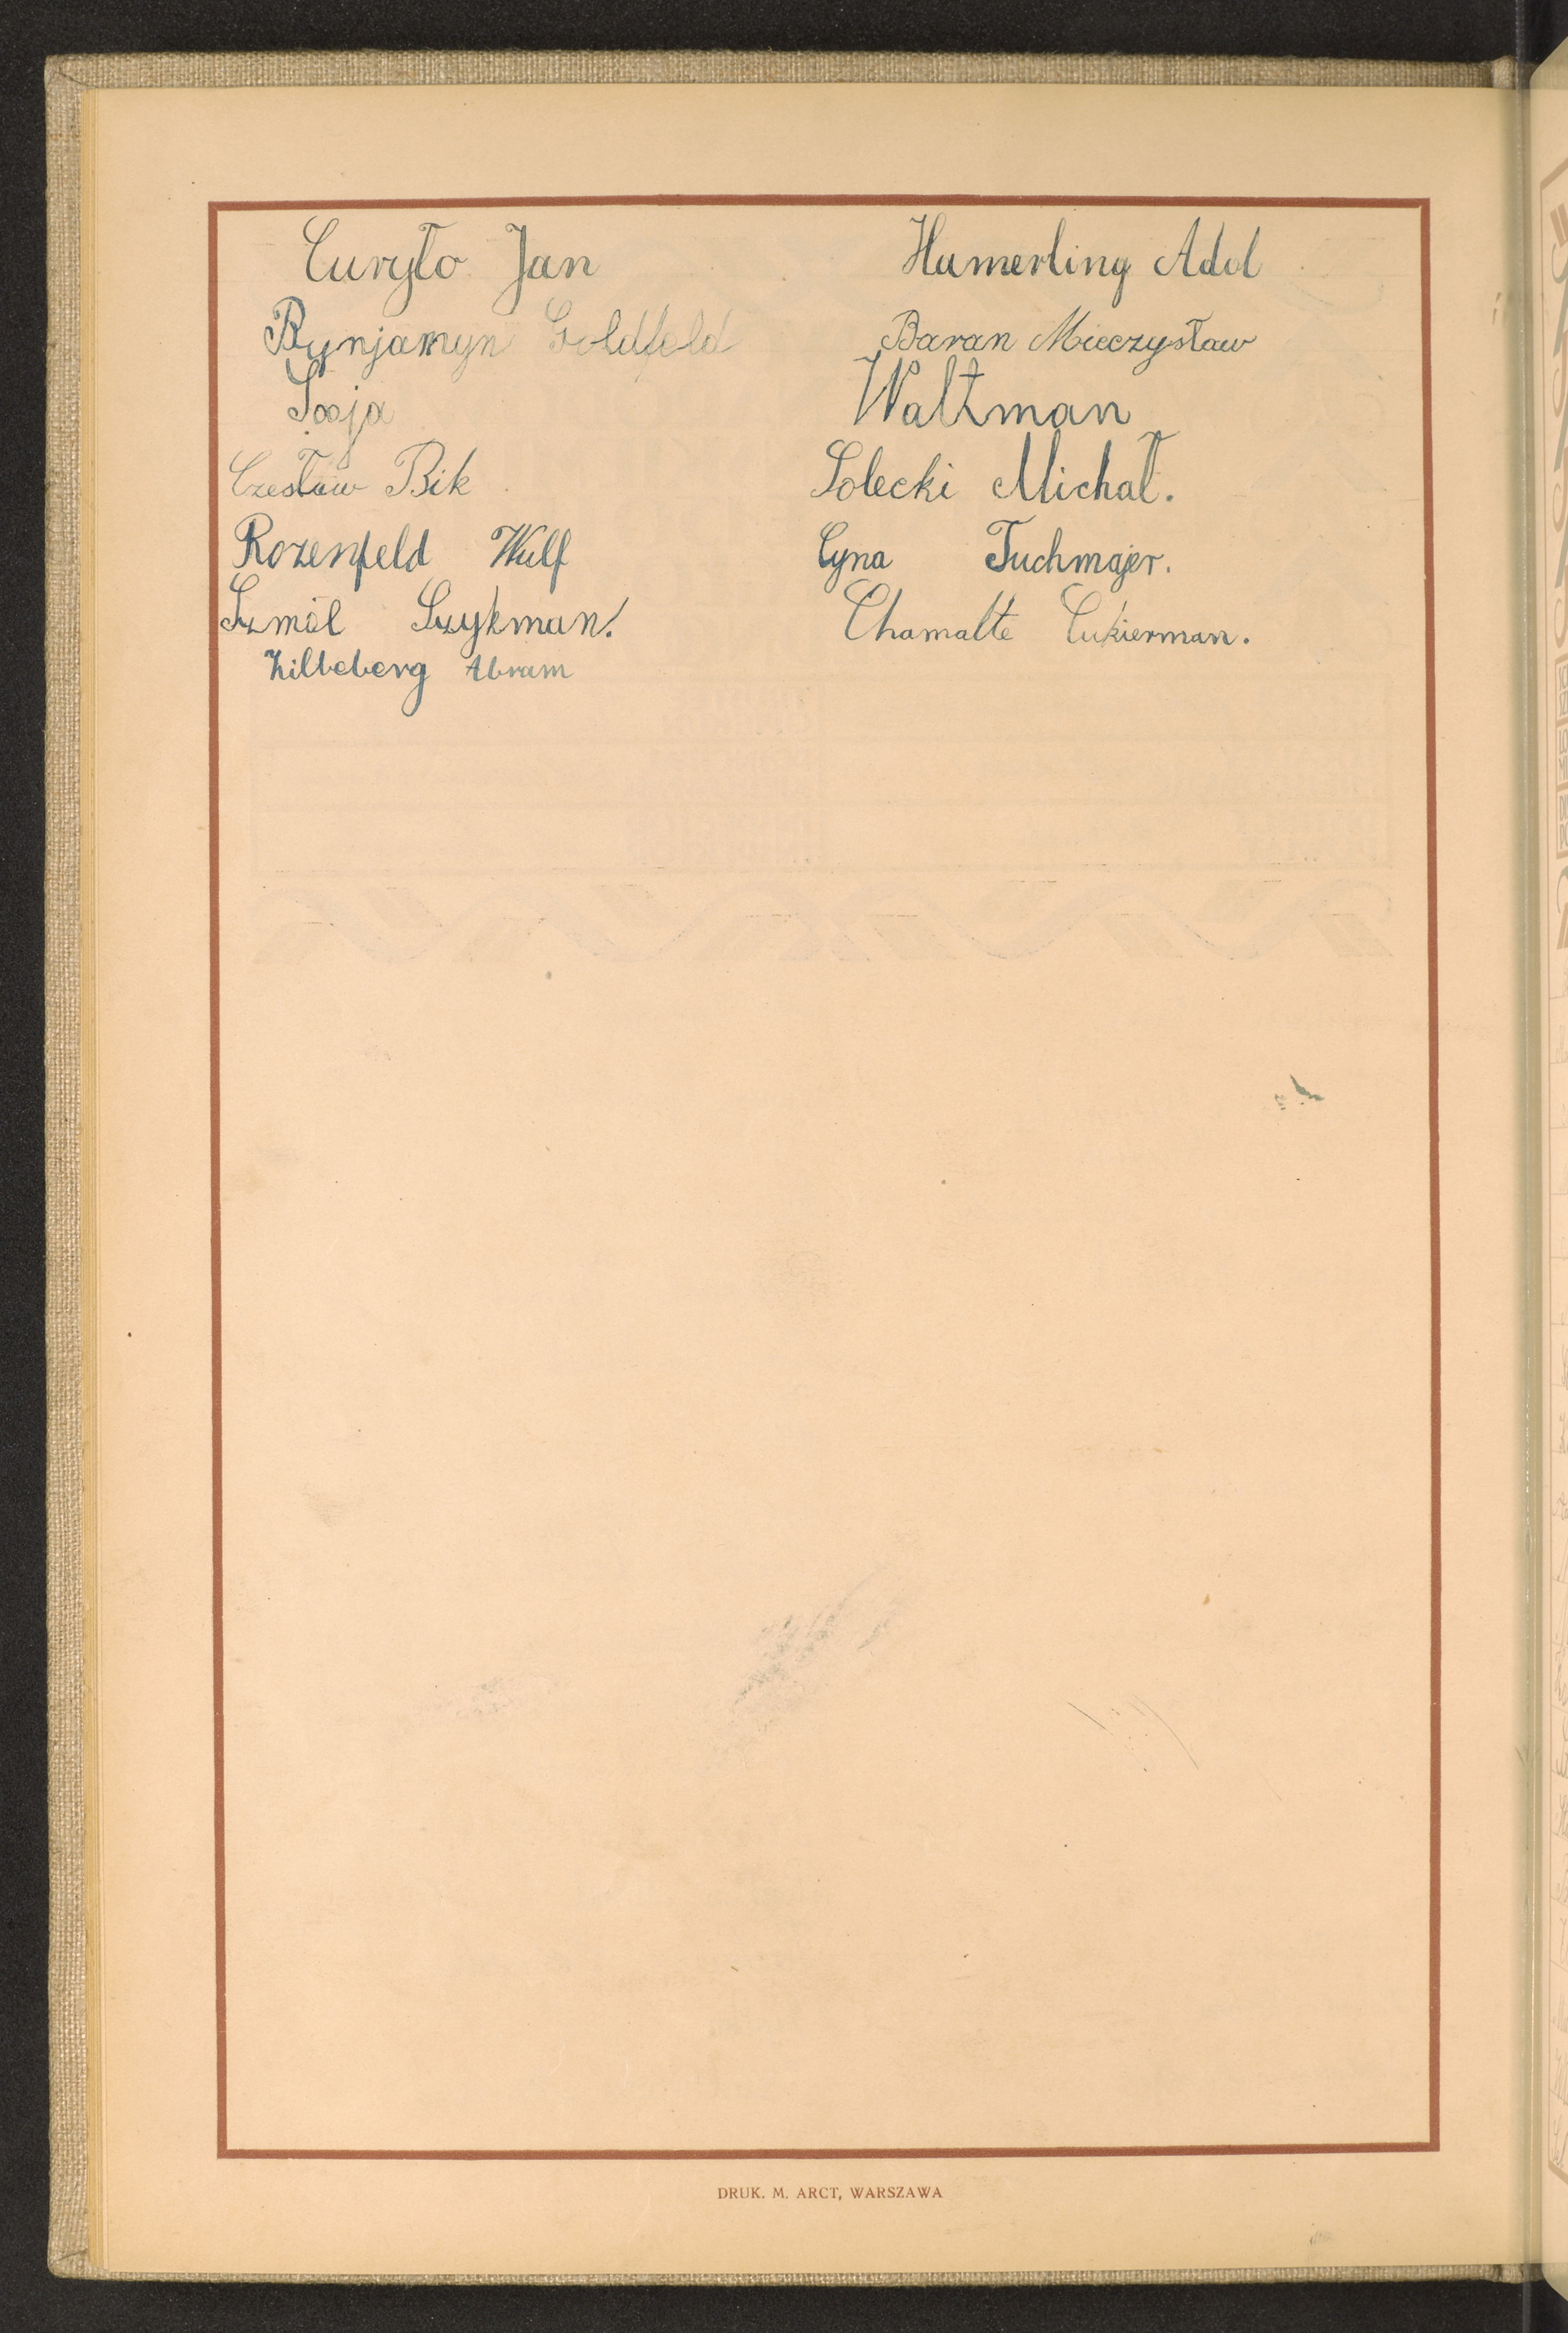 Curyło Jan
Bynjamyn Goldfeld
Soja
Czesław Bik
Rozenfeld Wulf
Szmól Szykman.
Zilbeberg Abram
Hamerling Adol
Baran Mieczysław
Waltman
Solecki Michał.
Cyna Tuchmajer.
Chamalte Cukierman.
DRUK. M. ARCT, WARSZAWA